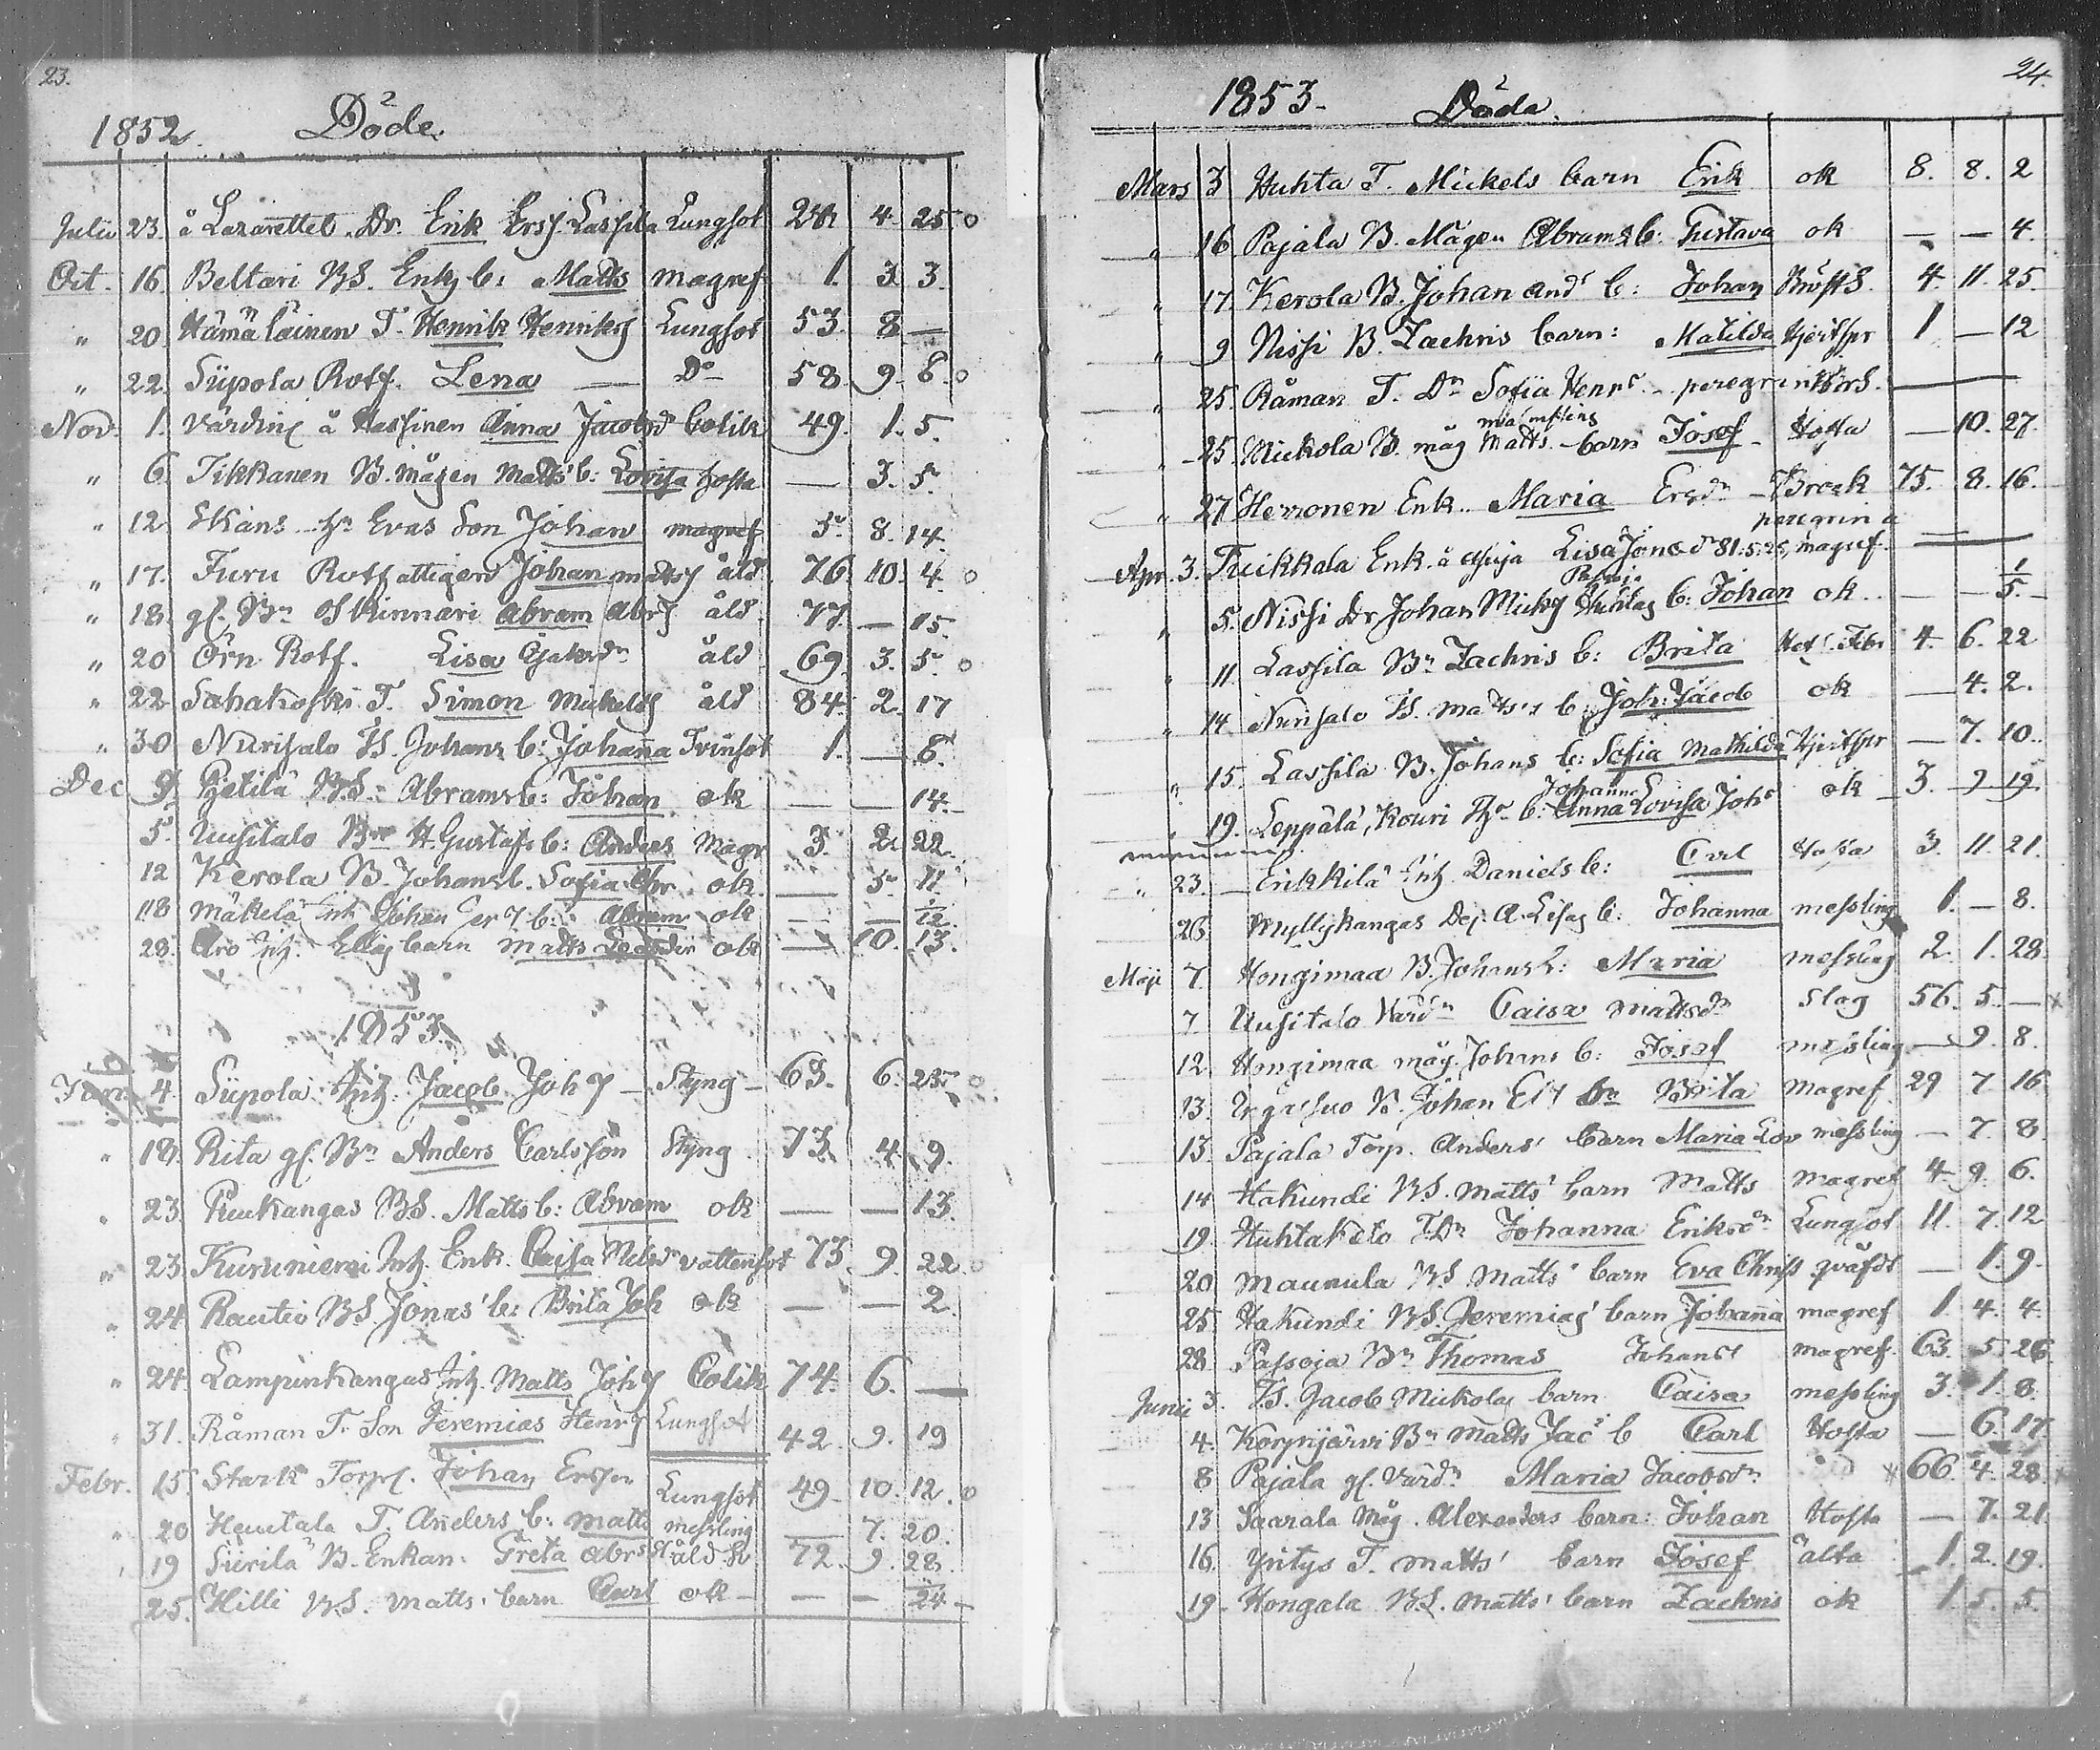 23.
1852. Döde.
Julii 23. å Lazarettet Dr. Erik Ersf. Lassila Lungsot 24 4. 25 o
Oct. 16. Beltari BS. Enkf b: Matts magref 1. 3 3.
" 20 Hämäläinen T. Henrik Henriksf Lungsot 53 8 —
" 22. Siipola Rotf. Lena — Do 58. 9. 8. o
Nov. 1. Värdin å Hassinen Anna Jacobsd Colik 49. 1. 5.
" 6. Tikkanen B. mågen Matts b: Lovisa hosta — 3. 5.
" 12 Skans Evas Son Johan magref 5. 8. 14.
" 17. Furu Rotfattigen Johan mattsf åld. 76 10. 4. o
" 18. gf. Bn Skinnari Abram Abrf åld. 77. — 15.
" 20 Örn Rotf. Lisa åld 69. 3. 5. o
" 22 Sahakoski T. Simon Mickelsf åld 84. 2. 17
" 30 Nurisalo IS. Johans b: Johanna Tvinsot 1. — 8.
Dec 9 Pjetilä BS. Abrams b: Johan ok — — 14.
5. Uusitalo Bn H. Gustafs b: Anders Magr 3. 2. 22.
12 Kerola B. Johans b. Sofia Chr. ok. — 5. 11.
18 mäkelä Inh Johan b: Abram ok — — 12.
28. Aro Inh. barn matts ok — 10. 13.
1853.
Jan. 4. Siipola Inh. Jacob Johf — Styng — 63. 6. 25. o
" 18. Rita gf. Bn Anders Carlsson Styng 73. 4. 9.
" 23. Puukangas BS. Matts b: Abram ok — — 13.
" 23. Kuruniemi Inh. Enk. Caisa Nilsd vattensot 73. 9. 22. o
" 24. Rautio BS. Jonas' b: Brita Joh ok — — 2.
" 24. Lampinkangas Inh. Matts Johf Colik 74. 6. —
" 31. Råman T. Son Jeremias Henrf Lungsot 42. 9. 19
Febr. 15. Stark Torp. Johan Lungsot 49. 10. 12. o
" 20 Heuitala T. Anders b: matts messling — 7. 20.
" 19 Siirilä B. Enkan. Greta Abrsd åld 72. 9. 28.
25. Hilli BS. Matts' barn Carl ok — — — 24 —
24.
1853. Döda.
Mars 3 Huhta T. Mickels barn Erik ok 8. 8. 2
" 16 Pajala B. Mågen Abrams b: Gustava ok — — 4.
" 17. Kerola B. Johan And' b: Johan BröstS. 4. 11. 25.
" 9 Nissi B. Zachris barn: Matilda Hjertspr 1 — 12
" 25. Råman T. Dr Sofia Henrs. peregrin —
" 25. Mickola B. måg Matts barn Josef Hosta — 10. 27.
messling
27 Herronen Enk. Maria Ersdr — Brosk 75. 8. 16.
peregrin a
Apr. 3. Enk. å Lisa Jonsdr 81:5:25 magref —
5. Nissi Dr Johan b: Johan ok.. — — 5. —
11 Lassila Bn Zachris b: Brita Het. Febr 4. 6. 22
" 14. Nurisalo IS. matts's b: Joh: Jacob ok — 4. 2.
" 15. Lassila B. Johans b: Sofia Mathilda Hjertspr — 7. 10.
Johanna
" 19. Leppälä, Kouri b: Anna Lovisa Johs ok 3. 9 19.
" 23. Erikkilä Inh. Daniels b: Carl Hosta 3. 11. 21.
26 Myllykangas A. b: Johanna messling 1. — 8.
Maji 7. Hongimaa B. Johans b: Maria messling 2. 1. 28.
7 Uusitalo Värdn Caisa Mattsdr Slag 56. 5. — x
12. Hongimaa måg. Johans b: Josef messling — 9. 8.
13. B. Johan Brita Magref. 29 7 16
13. Pajala Torp. Anders' barn Maria Lov messling — 7. 8.
14 Hakundi BS. Matts' barn Matts magref 4. 9. 6.
19 Huhtakato Johanna Eriksdr Lungsot 11. 7. 12
20 Maunula BS Matts' barn Eva Chris qväfdt — 1. 9.
25 Hakundi BS. Jeremias' barn Johanna magref 1 4. 4.
28 Passoja Bn Thomas Johans magref. 63. 5. 26.
Junii 3. IS. Jacob Mickolas barn Caisa messling 3. 1. 8.
4. Korpijärvi Bn Matts Jac' b Carl Hosta — 6. 17.
8 Pajala gf. Värdn Maria Jacobsdr åld x 66. 4. 28. x
13 Saarala Måg. Alexanders barn: Johan Hosta — 7. 21.
16. Yritys T. Matts' barn Josef ålta 1. 2. 19.
19. Hongala BS. Matts' barn Zachris ok 1. 5. 5.